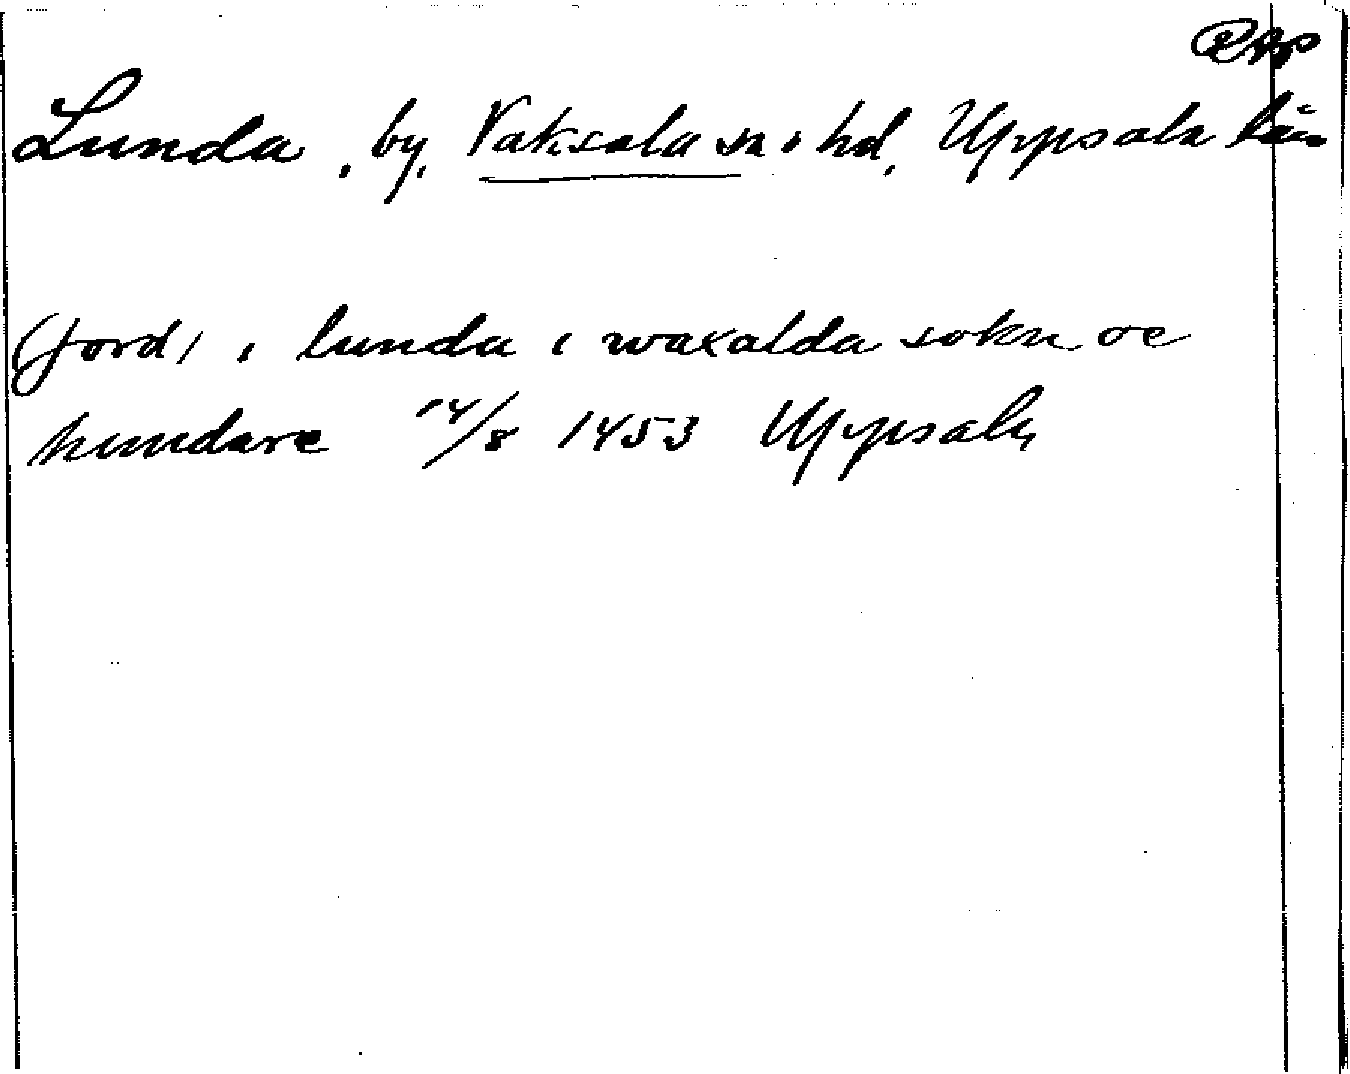 RAp
Lunda, by, Vaksala sn o hd, Uppsala län
(jord) i lunda i waxalda sokn oc
hundare 14/8 1453 Uppsala